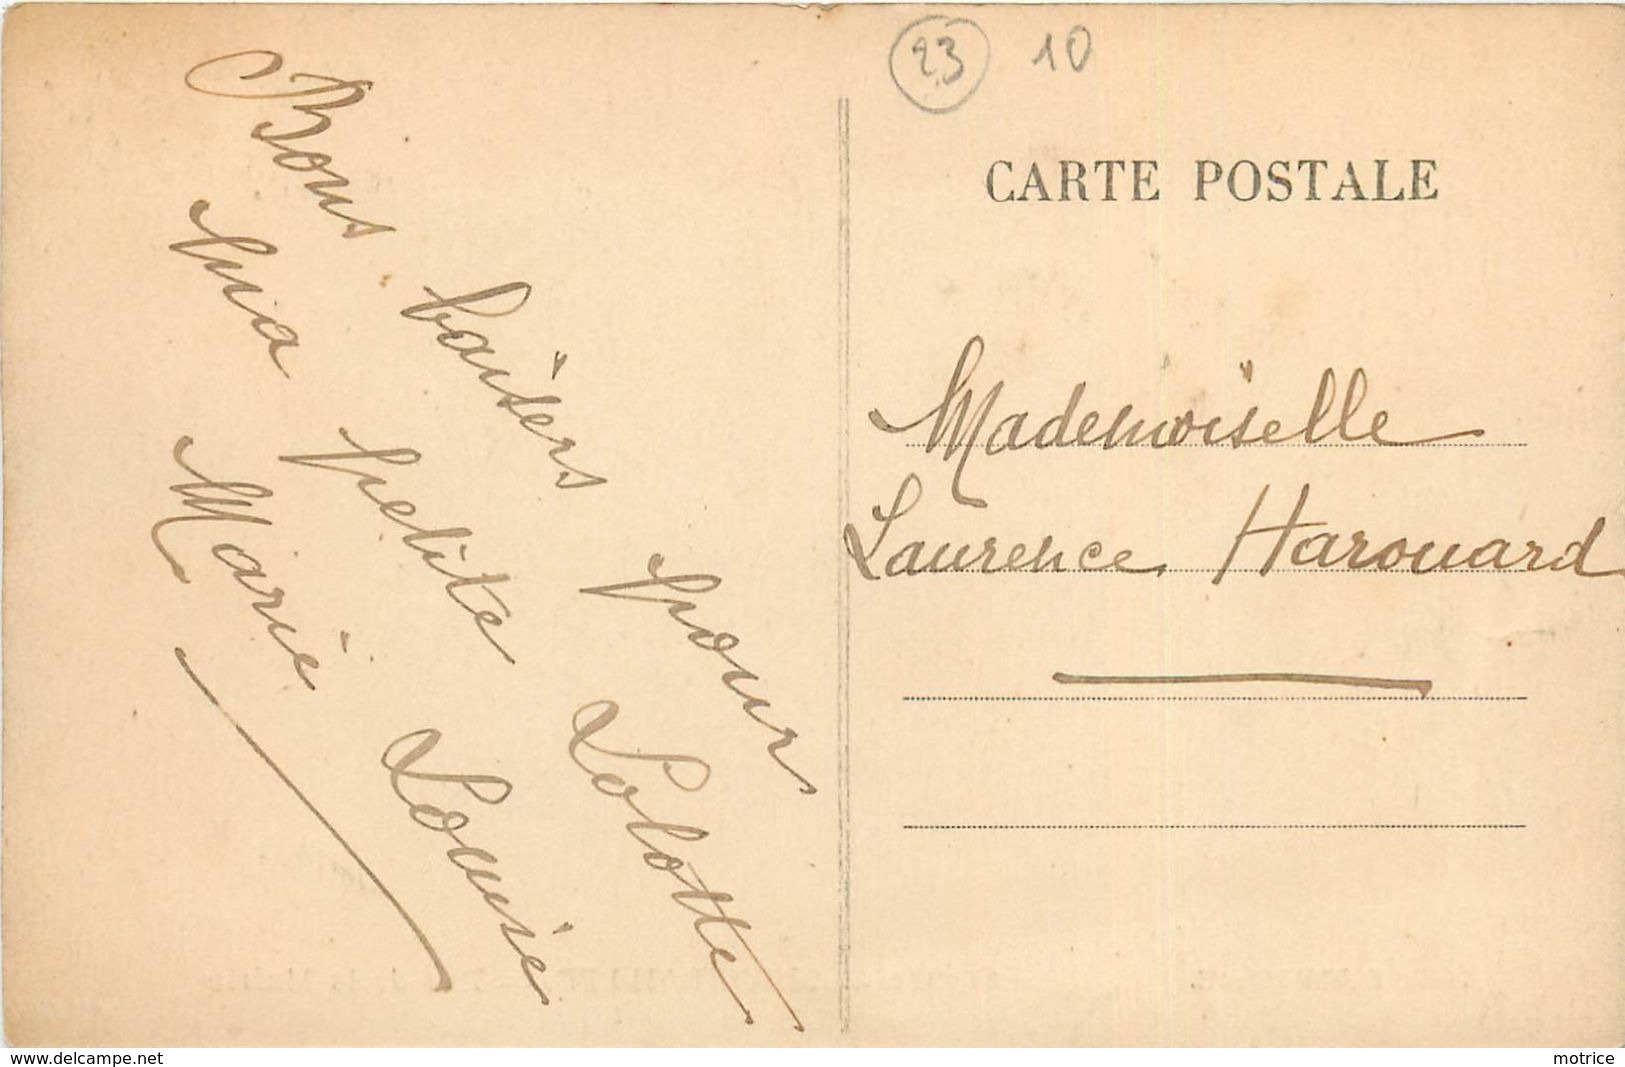 23 10
CARTE POSTALE
Bons baisers pour
ma petite Lolotte
Marie Louise
Mademoiselle
Laurence Harouard
www.delcampe.net
motrice